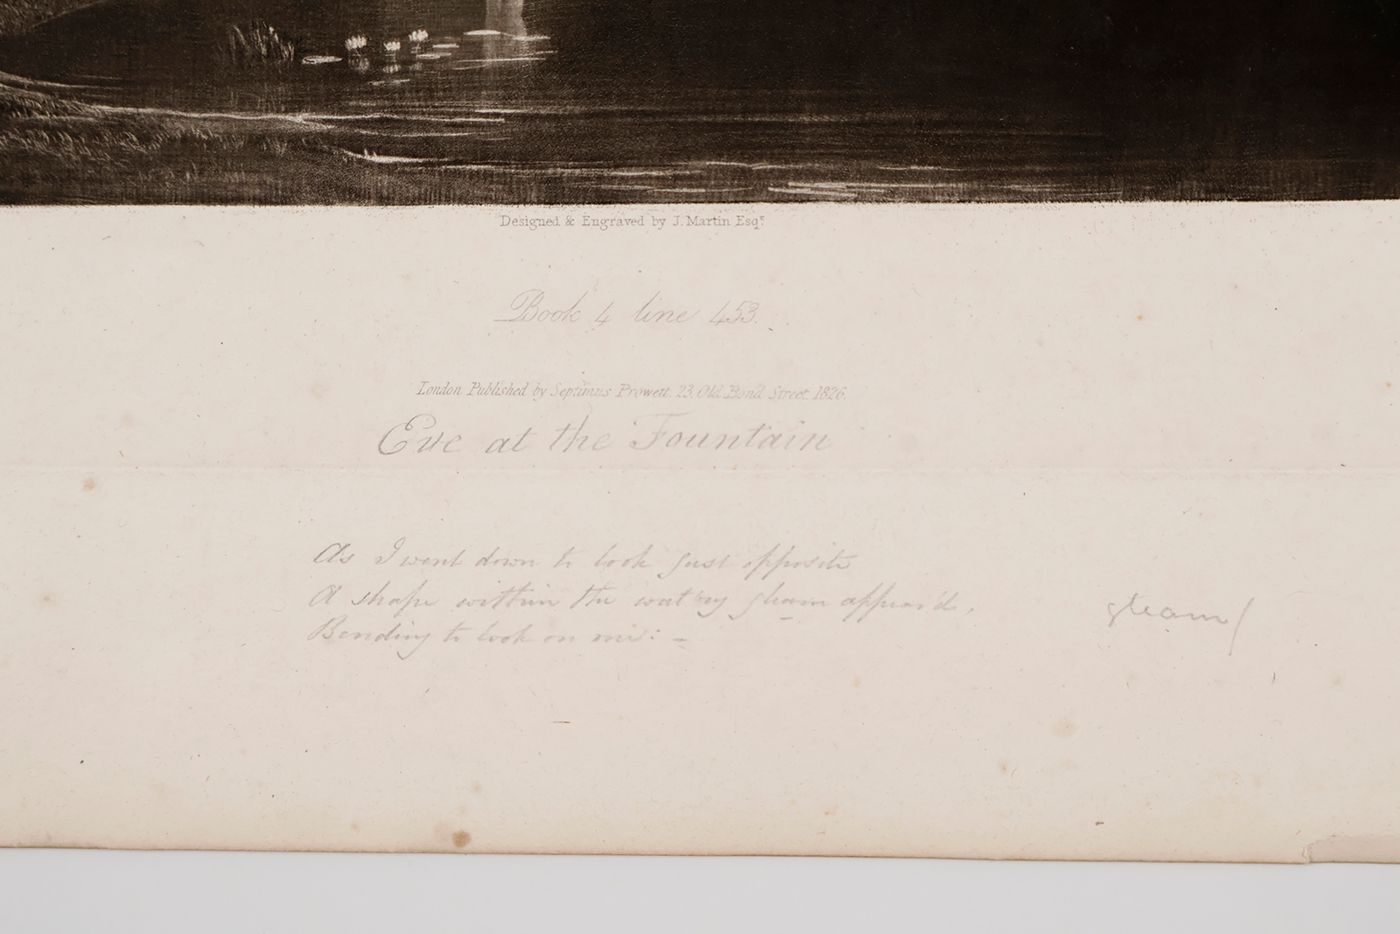 Designed & Engraved by J. Martin Esqr.
Book 4 line 453.
London Published by Septimus Prowett, 23, Old Bond Street, 1826.
Eve at the Fountain
As I went down to look just opposite
A shape within the wat'ry gleam appear'd,
Bending to look on me: –
gleam/